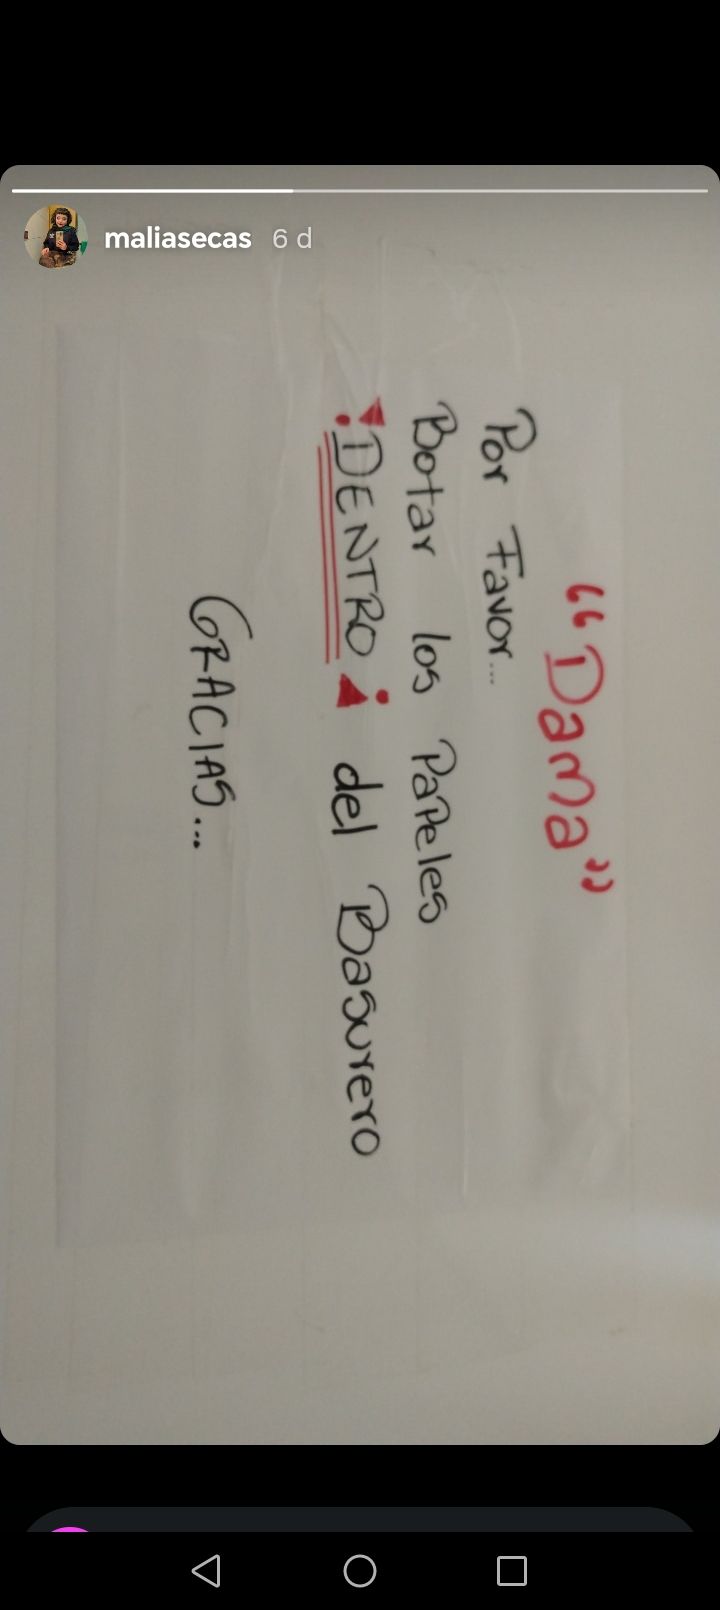 maliasecas 6 d
“Dama”
Por Favor...
Botar los Papeles
¡DENTRO! del Basurero
GRACIAS...